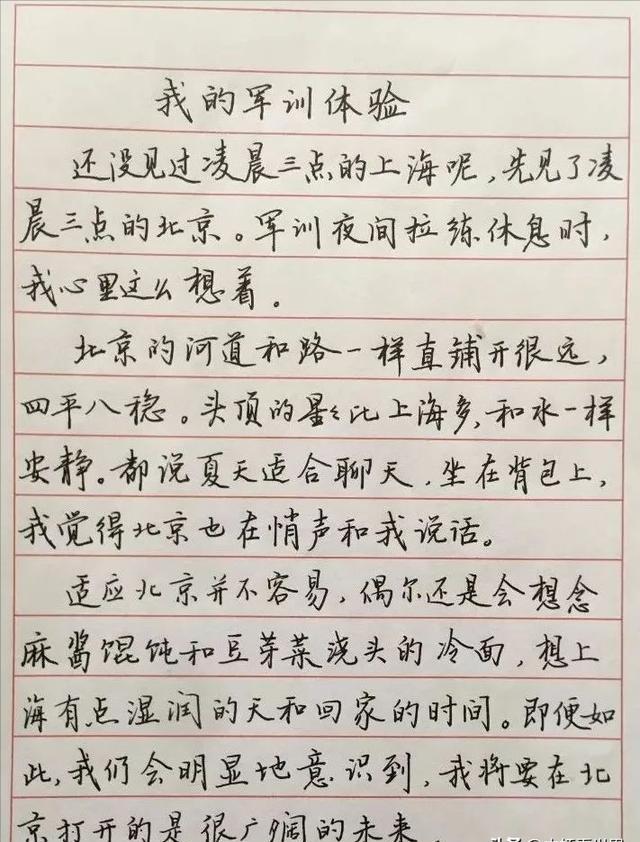 我的军训体验
还没见过凌晨三点的上海呢,先见了凌
晨三点的北京。军训夜间拉练休息时,
我心里这么想着。
北京的河道和路一样直铺开很远,
四平八稳。头顶的星星比上海多,和水一样
安静。都说夏天适合聊天,坐在背包上,
我觉得北京也在悄声和我说话。
适应北京并不容易,偶尔还是会想念
麻酱馄饨和豆芽菜浇头的冷面,想上
海有点湿润的天和回家的时间。即便如
此,我们会明显地意识到,我将要在北
京打开的是很广阔的未来